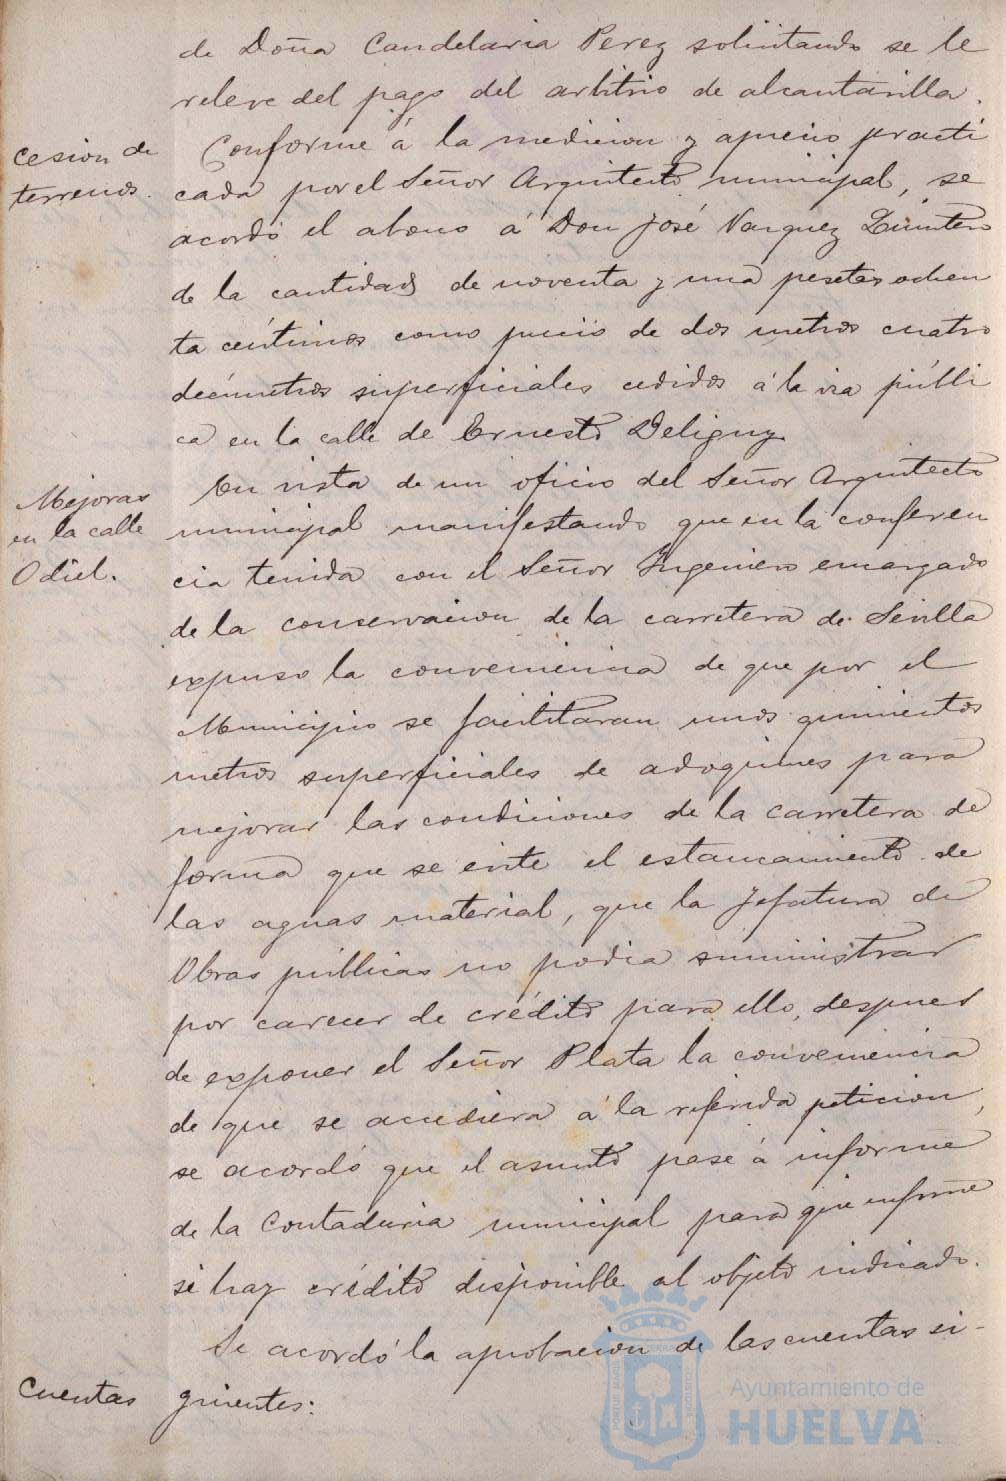 de Doña Candelaria Perez solicitando se le
releve del pago del arbitrio de alcantarilla.
Cesion de
terrenos.
Conforme á la medicion y aprecio practi
cada por el Señor Arquitecto municipal, se
acordó el abono á Don José Vazquez Quintero
de la cantidad de noventa y una pesetas ochen
ta céntimos como precio de dos metros cuatro
decímetros superficiales cedidos á la via públi
ca en la calle de Ernesto Deligny
Mejoras
en la calle
Odiel.
En vista de un oficio del Señor Arquitecto
municipal manifestando que en la conferen
cia tenida con el Señor Ingeniero encargado
de la conservacion de la carretera de Sevilla
expuso la conveniencia de que por el
Municipio se facilitaran unos quinientos
metros superficiales de adoquines para
mejorar las condiciones de la carretera de
forma que se evite el estancamiento de
las aguas material, que la Jefatura de
Obras públicas no podia suministrar
por carecer de crédito para ello, despues
de exponer el Señor Plata la conveniencia
de que se accediera á la referida peticion,
se acordó que el asunto pase á informe
de la Contaduria municipal para que informe
si hay crédito disponible al objeto indicado.
Se acordó la aprobacion de las cuentas si-
Cuentas
guientes:
Ayuntamiento de
HUELVA